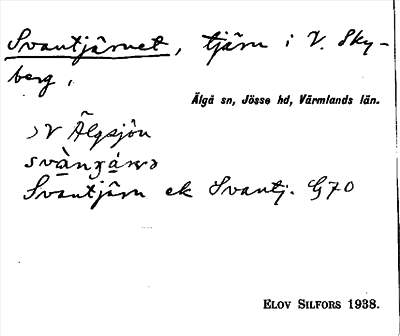 Svantjärnet, tjärn i V. Sky-
berg,
Älgå sn, Jösse hd, Värmlands län.
V Älgsjön
Svantjärn ek Svantj. G70
ELOV SILFORS 1938.